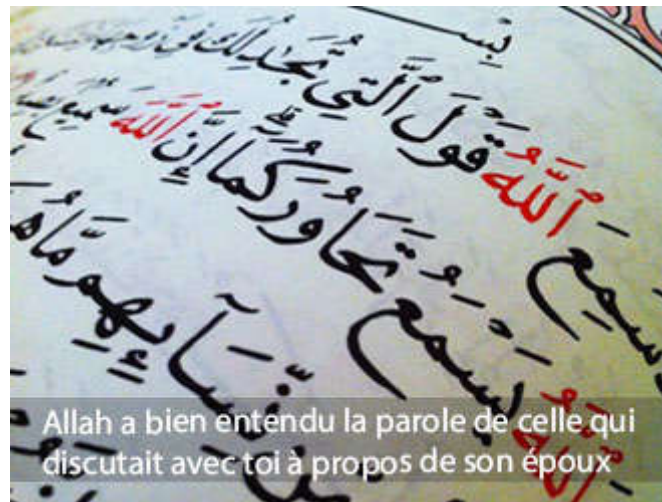 بِسْ
سَمِعَ ٱللَّهُ قَوْلَ ٱلَّتِي تُجَٰدِلُكَ فِي زَوْجِهَا
ٱللَّهُ يَسْمَعُ تَحَاوُرَكُمَآ إِنَّ ٱللَّهَ سَمِيعٌ
مِّن نِّسَآئِهِم مَّا هُنَّ
Allah a bien entendu la parole de celle qui
discutait avec toi à propos de son époux